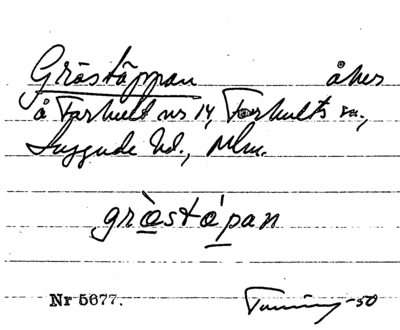 Gråståppan åker
å Farhult nr 14, Farhults sn,
Luggude hd., Mlm.
gråståpan
Nr 5677.
-50